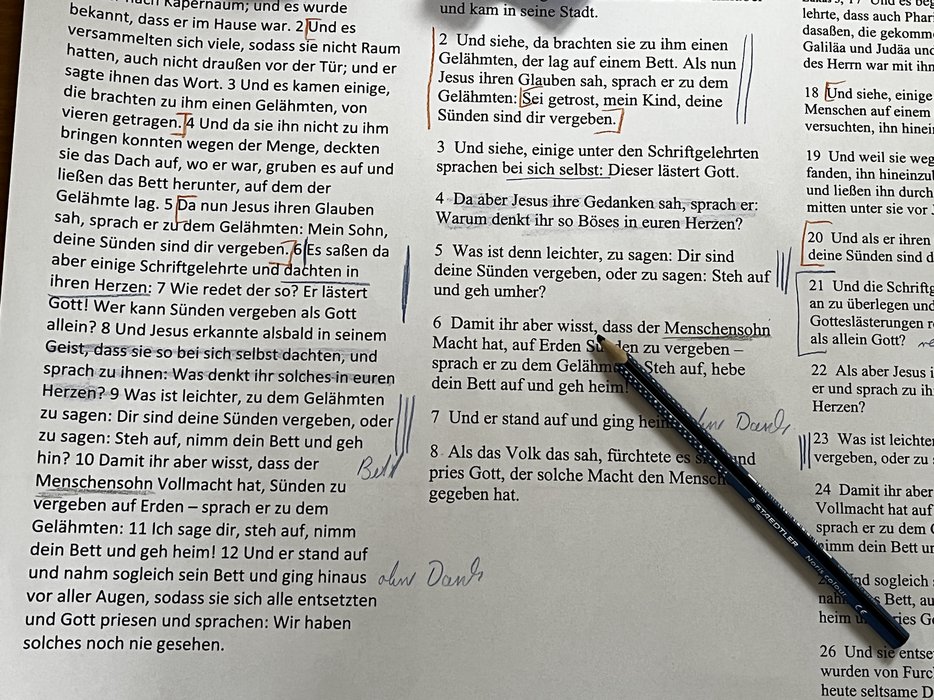 nach Kapernaum; und es wurde
bekannt, dass er im Hause war. 2 Und es
versammelten sich viele, sodass sie nicht Raum
hatten, auch nicht draußen vor der Tür; und er
sagte ihnen das Wort. 3 Und es kamen einige,
die brachten zu ihm einen Gelähmten, von
vieren getragen. 4 Und da sie ihn nicht zu ihm
bringen konnten wegen der Menge, deckten
sie das Dach auf, wo er war, gruben es auf und
ließen das Bett herunter, auf dem der
Gelähmte lag. 5 Da nun Jesus ihren Glauben
sah, sprach er zu dem Gelähmten: Mein Sohn,
deine Sünden sind dir vergeben. 6 Es saßen da
aber einige Schriftgelehrte und dachten in
ihren Herzen: 7 Wie redet der so? Er lästert
Gott! Wer kann Sünden vergeben als Gott
allein? 8 Und Jesus erkannte alsbald in seinem
Geist, dass sie so bei sich selbst dachten, und
sprach zu ihnen: Was denkt ihr solches in euren
Herzen? 9 Was ist leichter, zu dem Gelähmten
zu sagen: Dir sind deine Sünden vergeben, oder
zu sagen: Steh auf, nimm dein Bett und geh
hin? 10 Damit ihr aber wisst, dass der
Bett
Menschensohn Vollmacht hat, Sünden zu
vergeben auf Erden – sprach er zu dem
Gelähmten: 11 Ich sage dir, steh auf, nimm
dein Bett und geh heim! 12 Und er stand auf
und nahm sogleich sein Bett und ging hinaus ohne Dank
vor aller Augen, sodass sie sich alle entsetzten
und Gott priesen und sprachen: Wir haben
solches noch nie gesehen.
und kam in seine Stadt.
2 Und siehe, da brachten sie zu ihm einen
Gelähmten, der lag auf einem Bett. Als nun
Jesus ihren Glauben sah, sprach er zu dem
Gelähmten: Sei getrost, mein Kind, deine
Sünden sind dir vergeben.
3 Und siehe, einige unter den Schriftgelehrten
sprachen bei sich selbst: Dieser lästert Gott.
4 Da aber Jesus ihre Gedanken sah, sprach er:
Warum denkt ihr so Böses in euren Herzen?
5 Was ist denn leichter, zu sagen: Dir sind
deine Sünden vergeben, oder zu sagen: Steh auf
und geh umher?
6 Damit ihr aber wisst, dass der Menschensohn
Macht hat, auf Erden Sünden zu vergeben –
sprach er zu dem Gelähmten: Steh auf, hebe
dein Bett auf und geh heim!
7 Und er stand auf und ging heim. ohne Dank
8 Als das Volk das sah, fürchtete es sich und
pries Gott, der solche Macht den Menschen
gegeben hat.
lehrte, dass auch Phari
dasaßen, die gekomm
Galiläa und Judäa und
des Herrn war mit ihm
18 Und siehe, einige
Menschen auf einem
versuchten, ihn hinein
19 Und weil sie weg
fanden, ihn hineinzu
und ließen ihn durch
mitten unter sie vor
20 Und als er ihren
deine Sünden sind d
21 Und die Schriftg
an zu überlegen und
Gotteslästerungen r
als allein Gott?
22 Als aber Jesus i
er und sprach zu ih
Herzen?
23 Was ist leichter
vergeben, oder zu
24 Damit ihr aber
Vollmacht hat auf
sprach er zu dem G
nimm dein Bett un
nd sogleich
Bett, au
heim
STAEDTLER Noris colour CE
26 Und sie entse
wurden von Furc
heute seltsame D